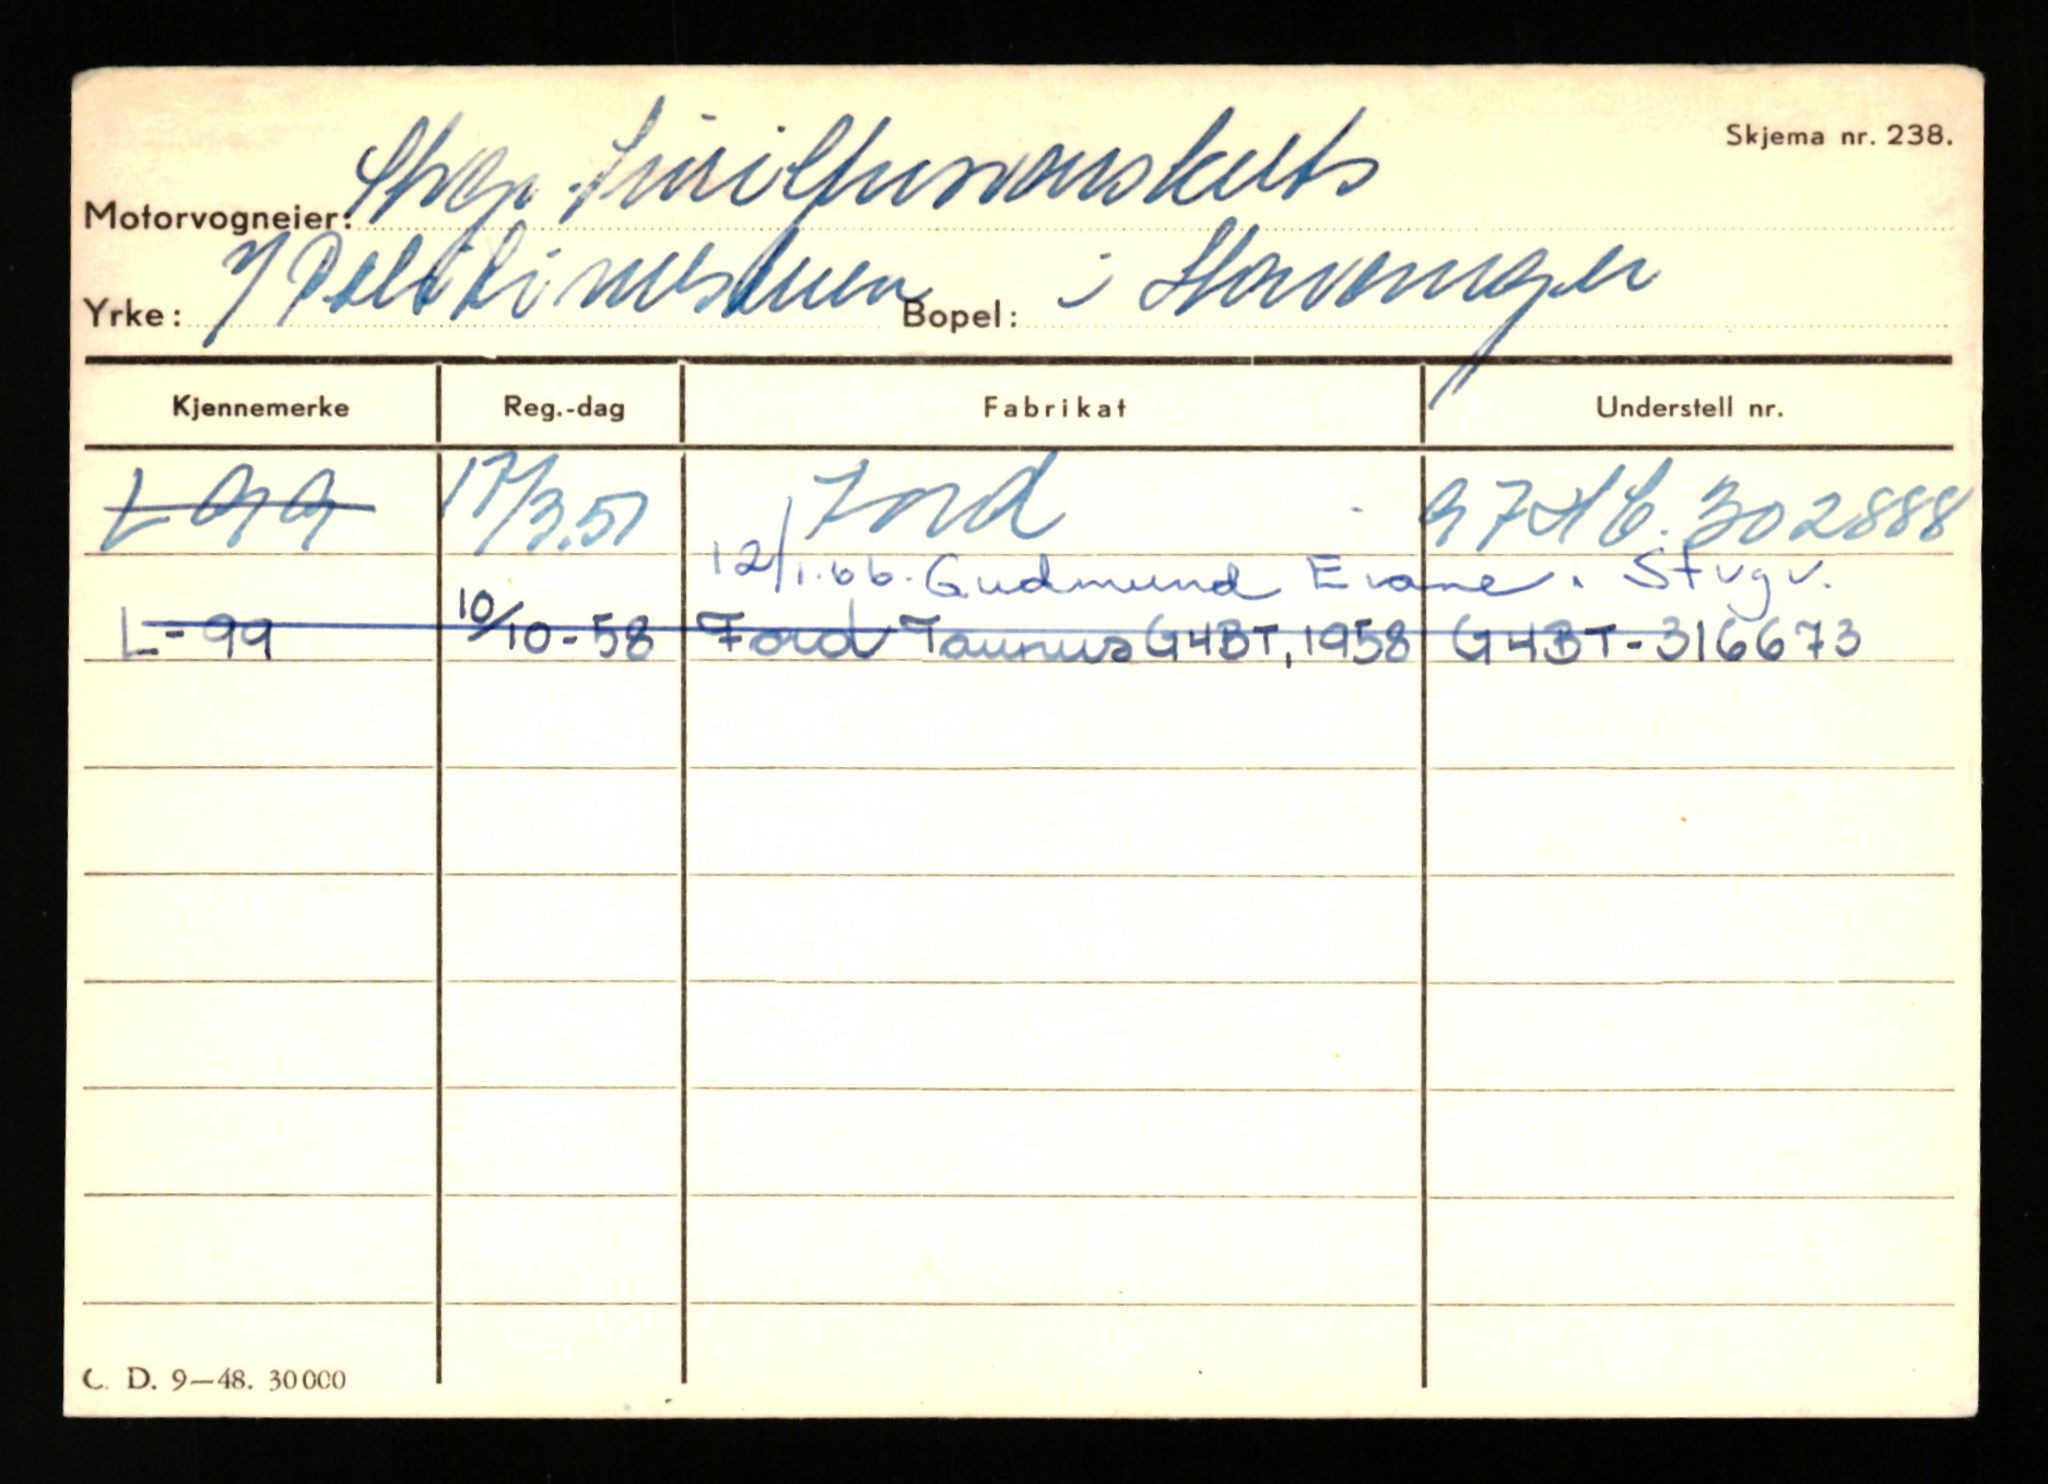 Skjema nr. 238.
Motorvogneier: Stvgr. sivilforsvarskrets
Yrke: v/ Politimesteren Bopel: i Stavanger
Kjennemerke Reg.-dag Fabrikat Understell nr.
L 99 17/3.51 Ford 97HC.302888
12/1.66. Gudmund Evane. Stvgv.
L-99 10/10-58 Ford Taunus G4BT, 1958 G4BT-316673
C. D. 9—48. 30000